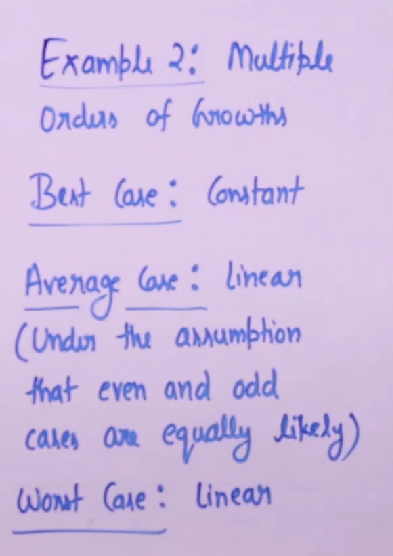 Example 2: Multiple
Orders of Growths
Best Case: Constant
Average Case: Linear
(Under the assumption
that even and odd
cases are equally likely)
Worst Case: Linear